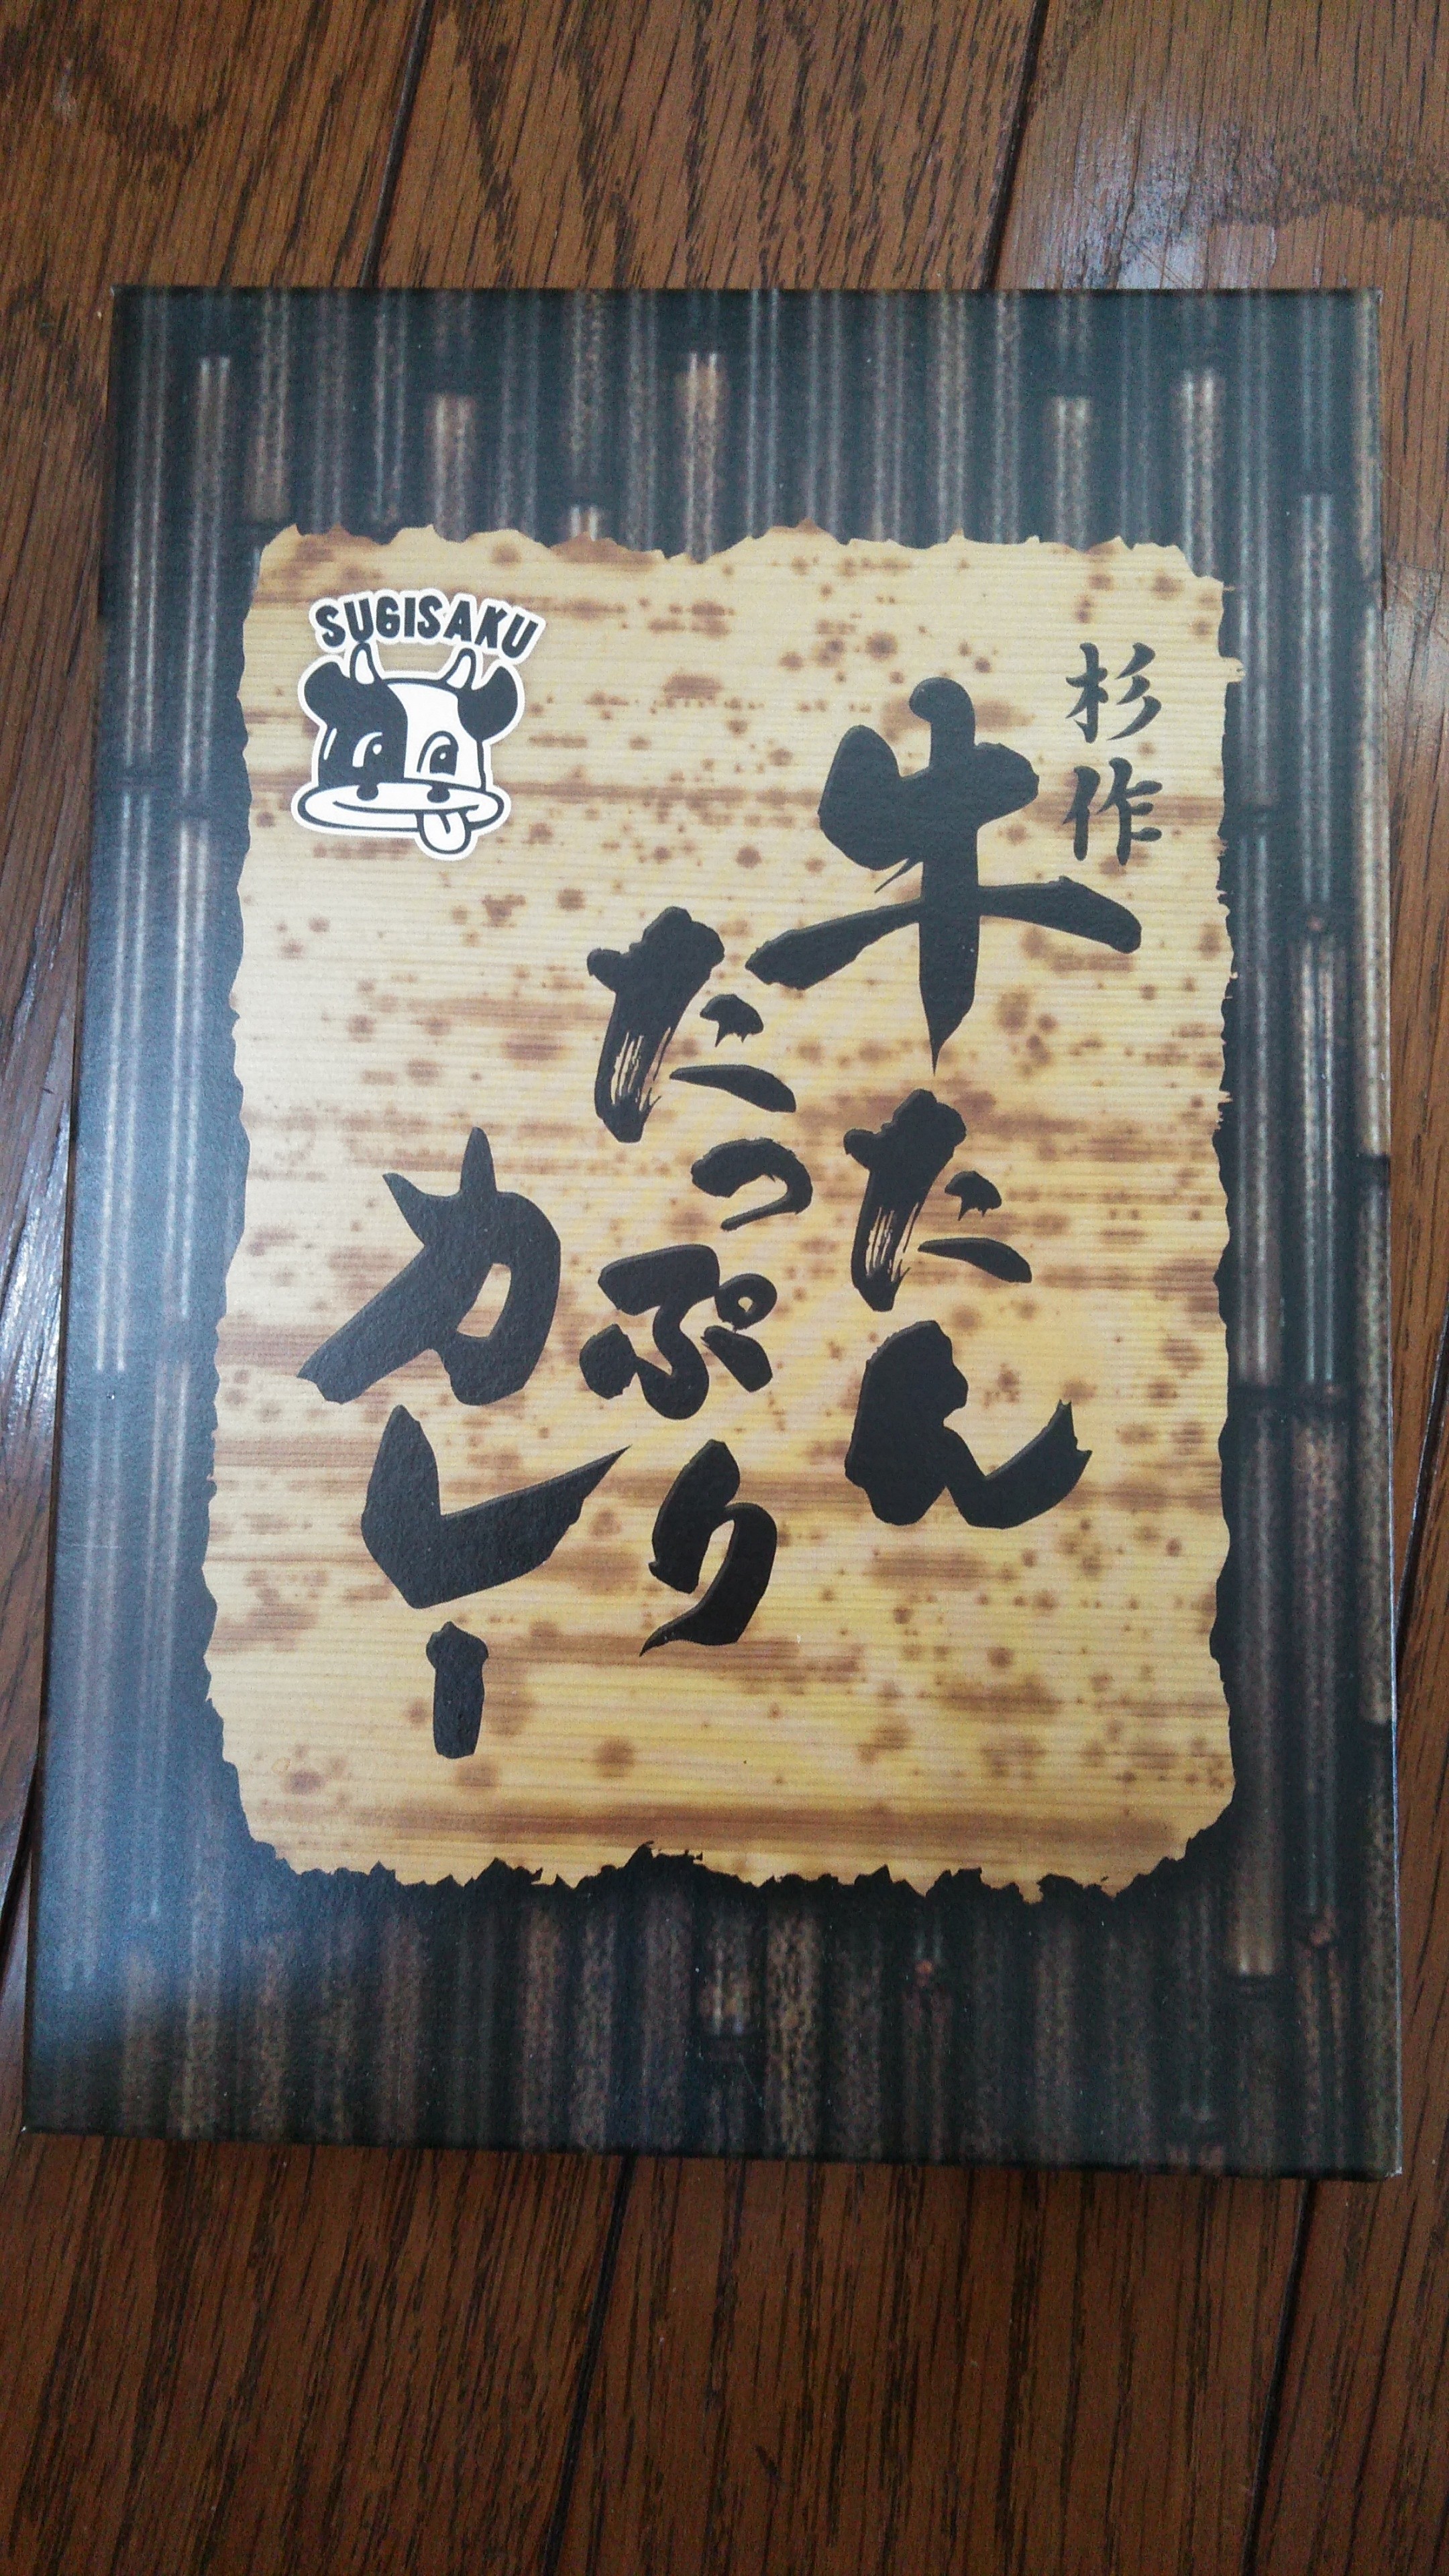 杉作
牛たん
たっぷり
カレー
SUGISAKU